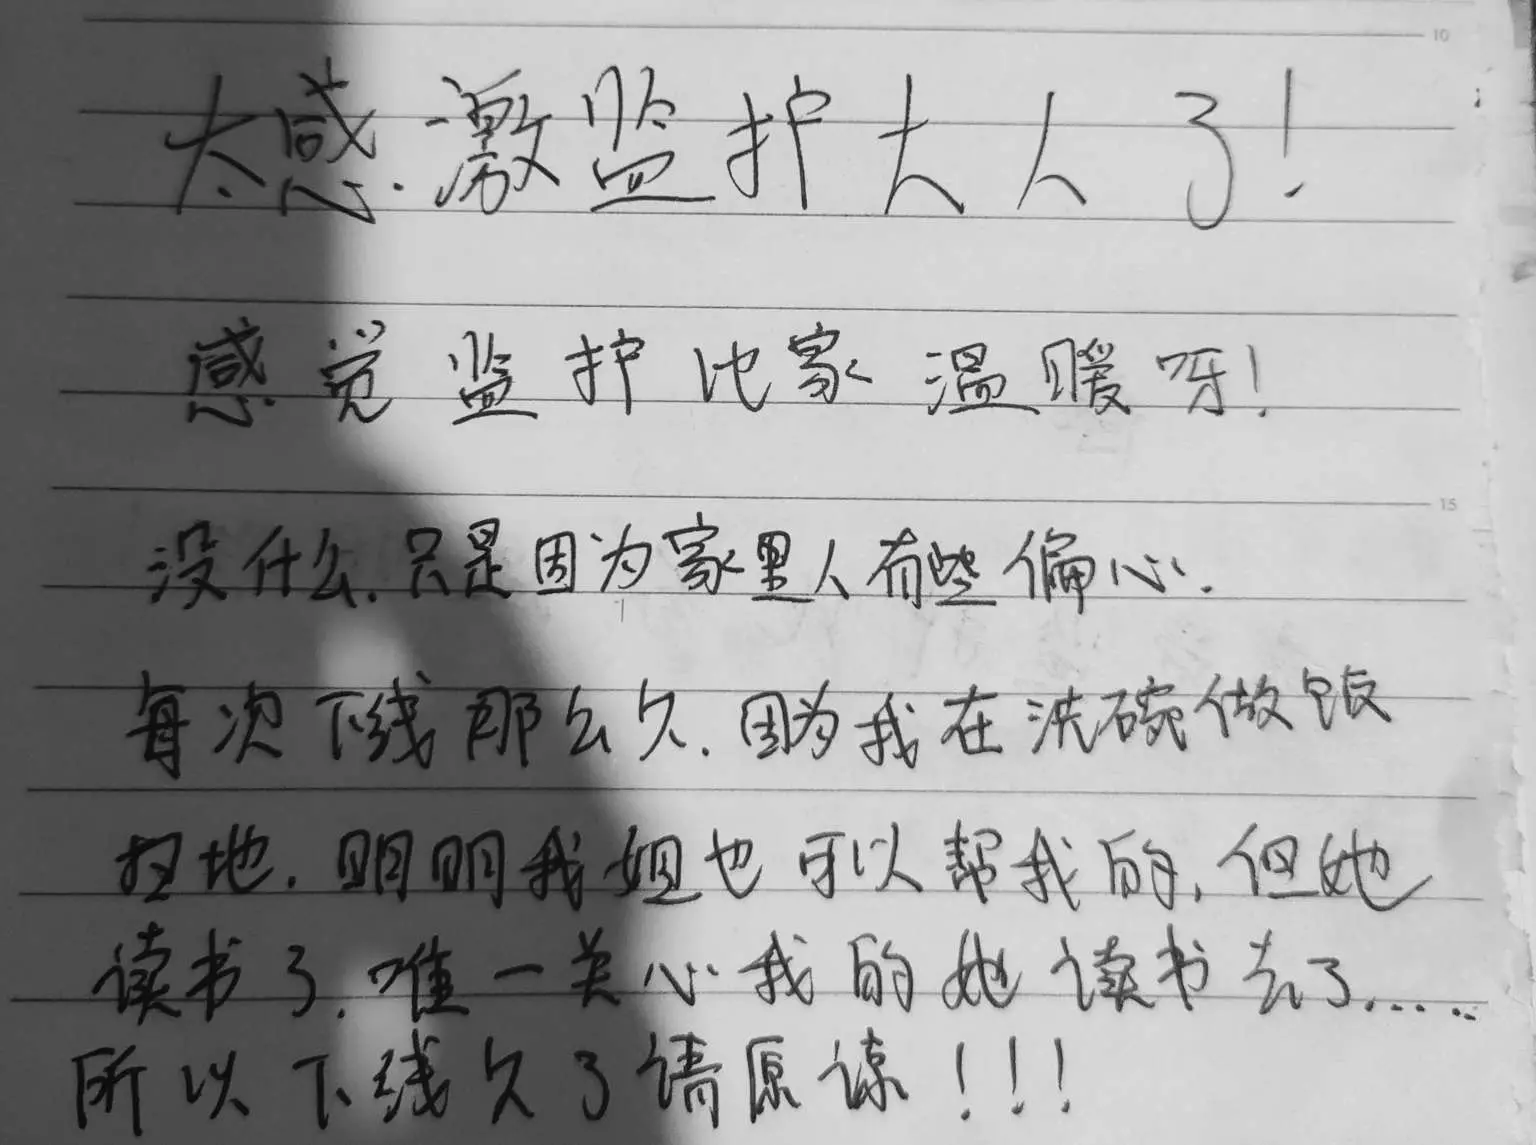 10
太感激监护大人了!
感觉监护比家温暖呀!
15
没什么.只是因为家里人有些偏心.
每次下线那么久.因为我在洗碗做饭
扫地.明明我姐也可以帮我的,但她
读书了.唯一关心我的她读书去了......
所以下线久了请原谅!!!